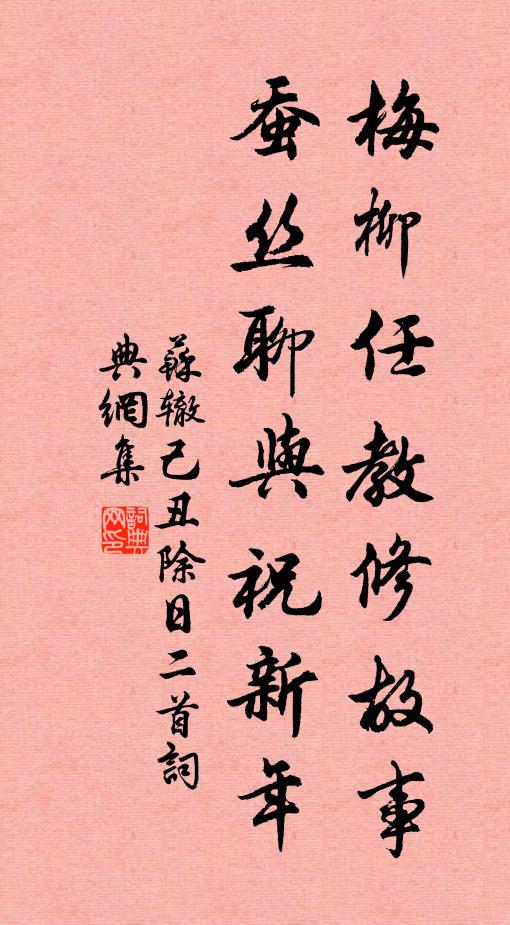 梅柳任教修故事
蚕丝聊與祝新年
蘇辙己丑除日二首詞
典網集
詞典网印